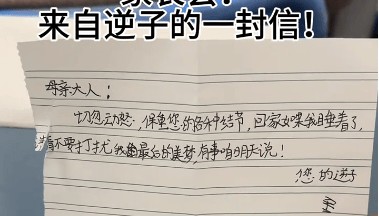 家长会:
来自逆子的一封信!
母亲大人:
切忽动怒,保重您的各种结节,回家如果我睡着了,
请不要打扰我最后的美梦,有事咱明天说!
您的逆子